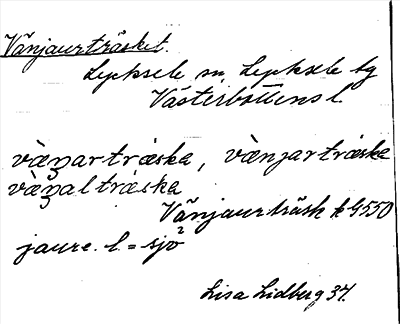 Vänjaurträsket.
Lycksele sn, Lycksele tg
Västerbottens l.
væŋartræska, vænjartræska
væŋaltræska
Vänjaurträsk k 9550
jaure. l = sjö
Lisa Lidberg 37.